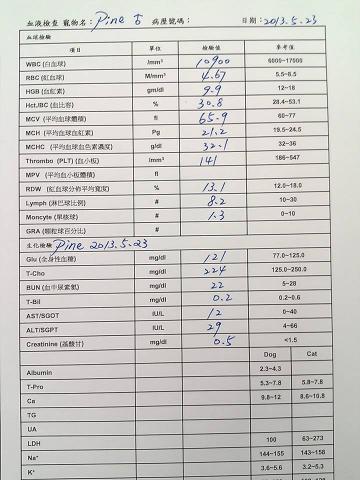 血液檢查 寵物名：Pine 吉 病歷號碼： 日期：2013.5.23
血球檢驗
項目 單位 檢驗值 參考值
WBC (白血球) /mm³ 10900 6000~17000
RBC (紅血球) M/mm³ 4.67 5.5~8.5
HGB (血紅素) gm/dl 9.9 12~18
Hct./BC (血比容) % 30.8 28.4~53.1
MCV (平均血球體積) fl 65.9 60~77
MCH (平均血球血紅素) Pg 21.2 19.5~24.5
MCHC (平均血球血色素濃度) g/dl 32.1 32~36
Thrombo (PLT) (血小板) /mm³ 141 186~547
MPV (平均血小板體積) fl
RDW (紅血球分佈平均寬度) % 13.1 12.0~18.0
Lymph (淋巴球比例) # 8.2 10~30
Moncyte (單核球) # 1.3 0~10
GRA (顆粒球百分比) #
生化檢驗 Pine 2013.5.23
Glu (全身性血糖) mg/dl 121 77.0~125.0
T-Cho mg/dl 224 125.0~250.0
BUN (血中尿素氮) mg/dl 22 5~28
T-Bil mg/dl 0.2 0.2~0.6
AST/SGOT IU/L 12 0~40
ALT/SGPT IU/L 29 4~66
Creatinine (基酸甘) mg/dl 0.5 <1.5
Dog Cat
Albumin 2.3~4.3
T-Pro 5.3~7.8 5.8~7.8
Ca 9.8~12 8.6~10.8
TG
UA
LDH 100 63~273
Na⁺ 144~155 143~158
K⁺ 3.6~5.6 3.2~5.3